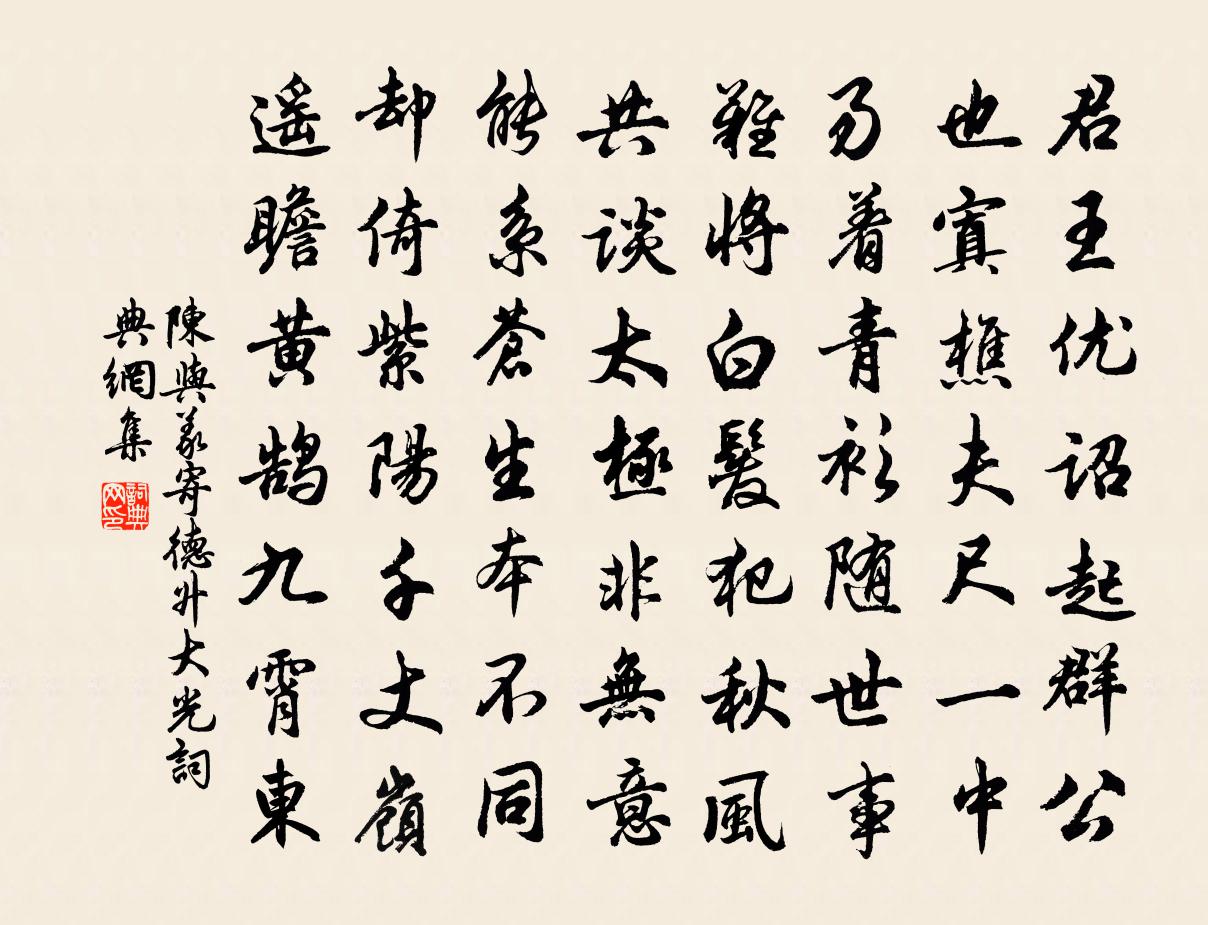 君王优诏起群公
也寘樵夫尺一中
易着青衫随世事
難將白髮犯秋風
共谈太極非無意
能系蒼生本不同
却倚紫陽千丈嶺
遥瞻黄鹄九霄東
陳與義寄德升大光詞
典網集
詞典
网印